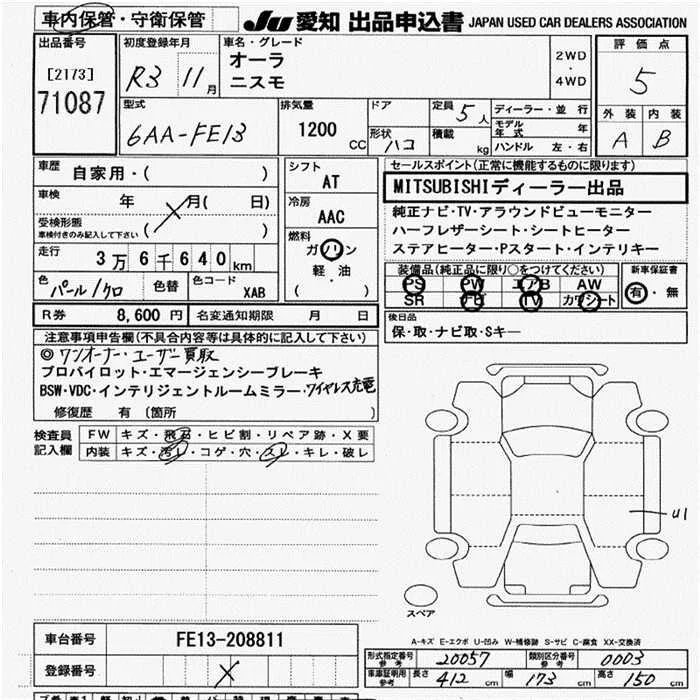 車内保管・守衛保管
JU 愛知 出品申込書 JAPAN USED CAR DEALERS ASSOCIATION
出品番号
[2173]
71087
初度登録年月
R3 11月
車名・グレード
オーラ
ニスモ
2WD
・
4WD
評価点
5
外装 内装
A B
型式
6AA-FE13
排気量
1200
CC
ドア
形状
ハコ
定員 5人
積載 kg
ディーラー・並行
モデル年式 年
ハンドル 左・右
車歴 自家用・( )
車検 年 月( 日)
受検形態
車検付きのみ記入して下さい ( )
走行 3万6千640km
色 パール/クロ 色替 色コード XAB
シフト
AT
冷房
AAC
燃料
ガソリン
軽・油
( )
セールスポイント(正常に機能するものに限ります)
MITSUBISHIディーラー出品
純正ナビ・TV・アラウンドビューモニター
ハーフレザーシート・シートヒーター
ステアヒーター・Pスタート・インテリキー
装備品(純正品に限り○をつけてください)
PS PW エアB AW
SR ナビ TV カワシート
新車保証書
有・無
R券 8,600円 名変通知期限 月 日
後日品
保・取・ナビ取・Sキー
注意事項申告欄(不具合内容等は具体的に記入して下さい)
◎ワンオーナー・ユーザー買取
プロパイロット・エマージェンシーブレーキ
BSW・VDC・インテリジェントルームミラー・ワイヤレス充電
修復歴 有 (箇所 )
検査員記入欄
FW キズ・飛石・ヒビ割・リペア跡・X要
内装 キズ・汚レ・コゲ・穴・スレ・キレ・破レ
U1
スペア
A-キズ E-エクボ U-凹み W-補修跡 S-サビ C-腐食 XX-交換済
車台番号 FE13-208811
登録番号
形式指定番号 参考 20057 類別区分番号 参考 0003
車車証明用 参考 長さ 412 cm 幅 173 cm 高さ 150 cm